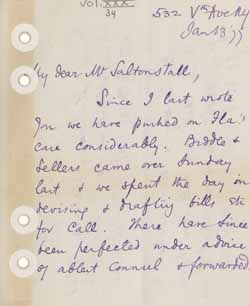 Vol. XXX
34
532 Vth Ave NY
Jan 13 '77
My dear Mr Saltonstall,
Since I last wrote
you we have pushed on Fla's
case considerably. Biddle &
Sellers came over Sunday
last & we spent the day in
devising & drafting bills etc
for Call. There have since
been perfected under advice
of ablest Counsel & forwarded